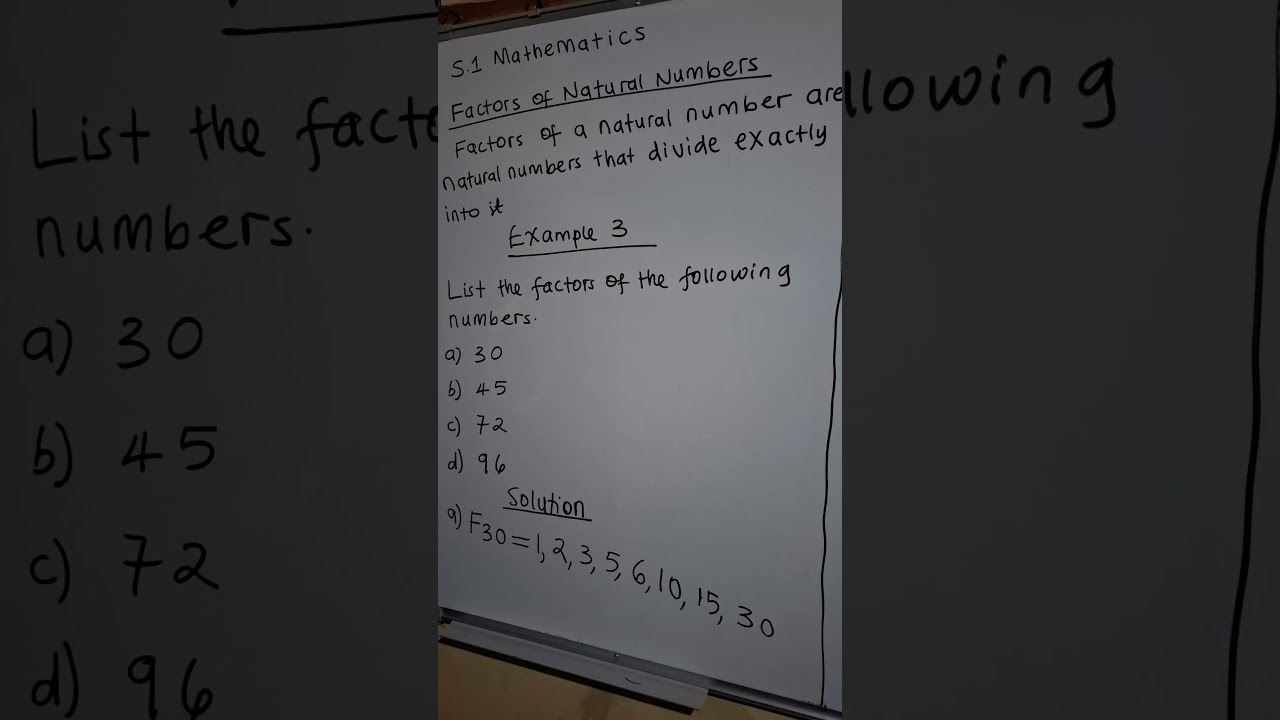 S.1 Mathematics
Factors of Natural Numbers
Factors of a natural number are
natural numbers that divide exactly
into it
Example 3
List the factors of the following
numbers.
a) 30
b) 45
c) 72
d) 96
Solution
a) F30 = 1, 2, 3, 5, 6, 10, 15, 30
List the facto
llowing
numbers.
a) 30
b) 45
c) 72
d) 96